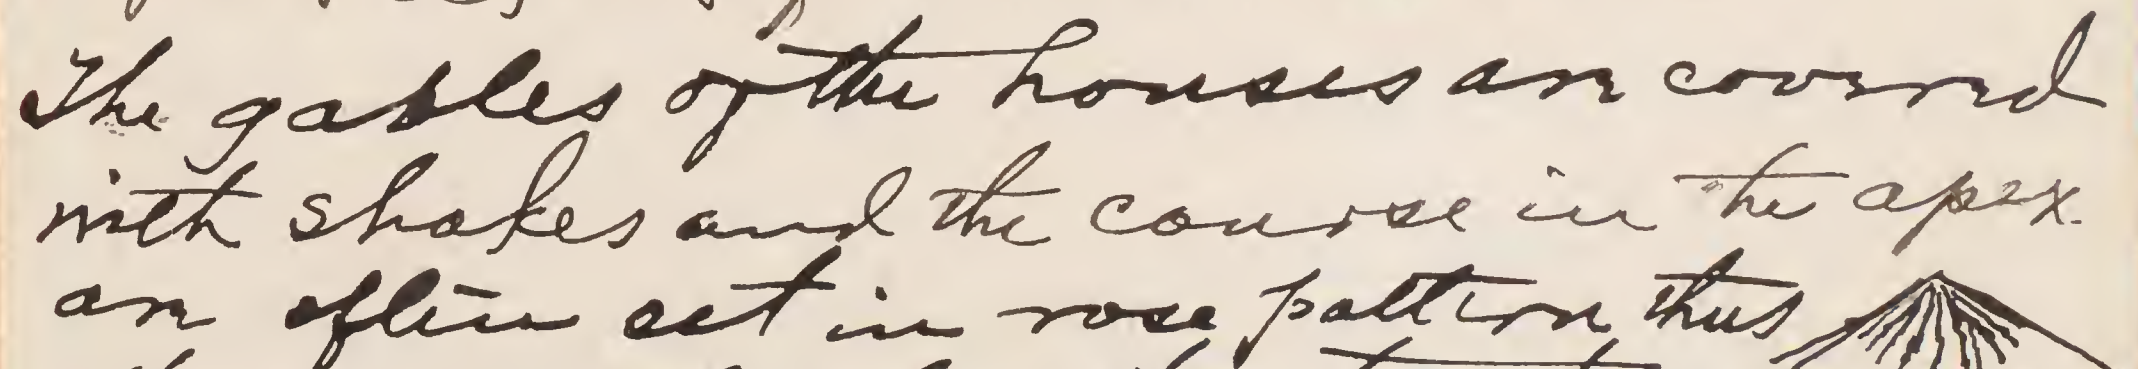 The gables of the houses are covered
with shakes and the course in the apex.
are often set in rose pattern thus